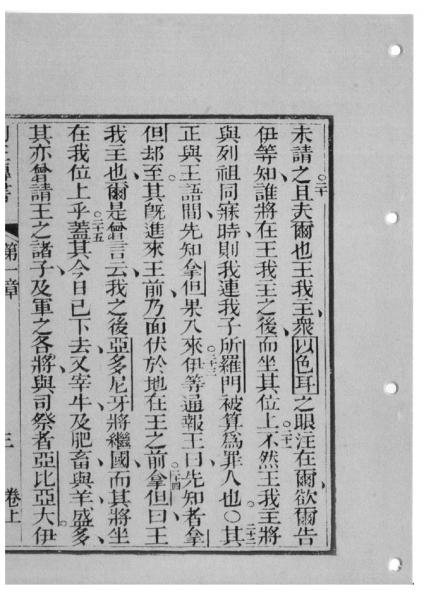 未請之且夫爾也王我主眾以色耳之眼注在爾欲爾告
伊等知誰將在王我主之後而坐其位上不然王我主將
與列祖同寐時則我連我子所羅門被算為罪人也○其
正與王語間先知拿但果入來伊等通報王曰先知者拿
但却至其既進來王前乃面伏於地在王之前拿但曰王
我王也爾是曾言云我之後亞多尼牙將繼國而其將坐
在我位上乎蓋其今日已下去又宰牛及肥畜與羊盛多
其亦曾請王之諸子及軍之各將與司祭者亞比亞大伊
第一章 三 卷上